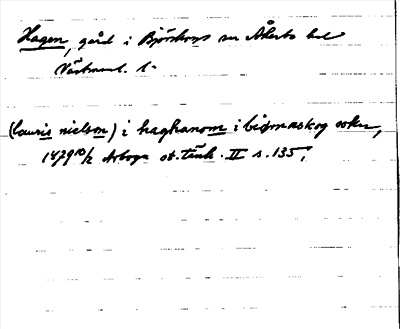 Hagen, gård i Björskogs sn Åkerbo hd
Västmanl. l.
(lauris nielson) i haghanom i biörnaskog sokn,
1479 10/2 Arboga st. tänk. II s. 135;